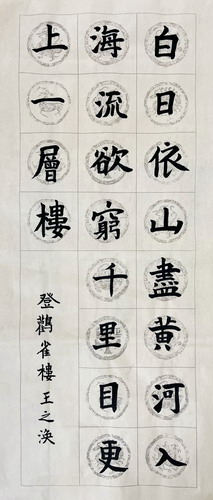 白日依山盡黃河入
海流欲窮千里目更
上一層樓
登鸛雀樓王之渙